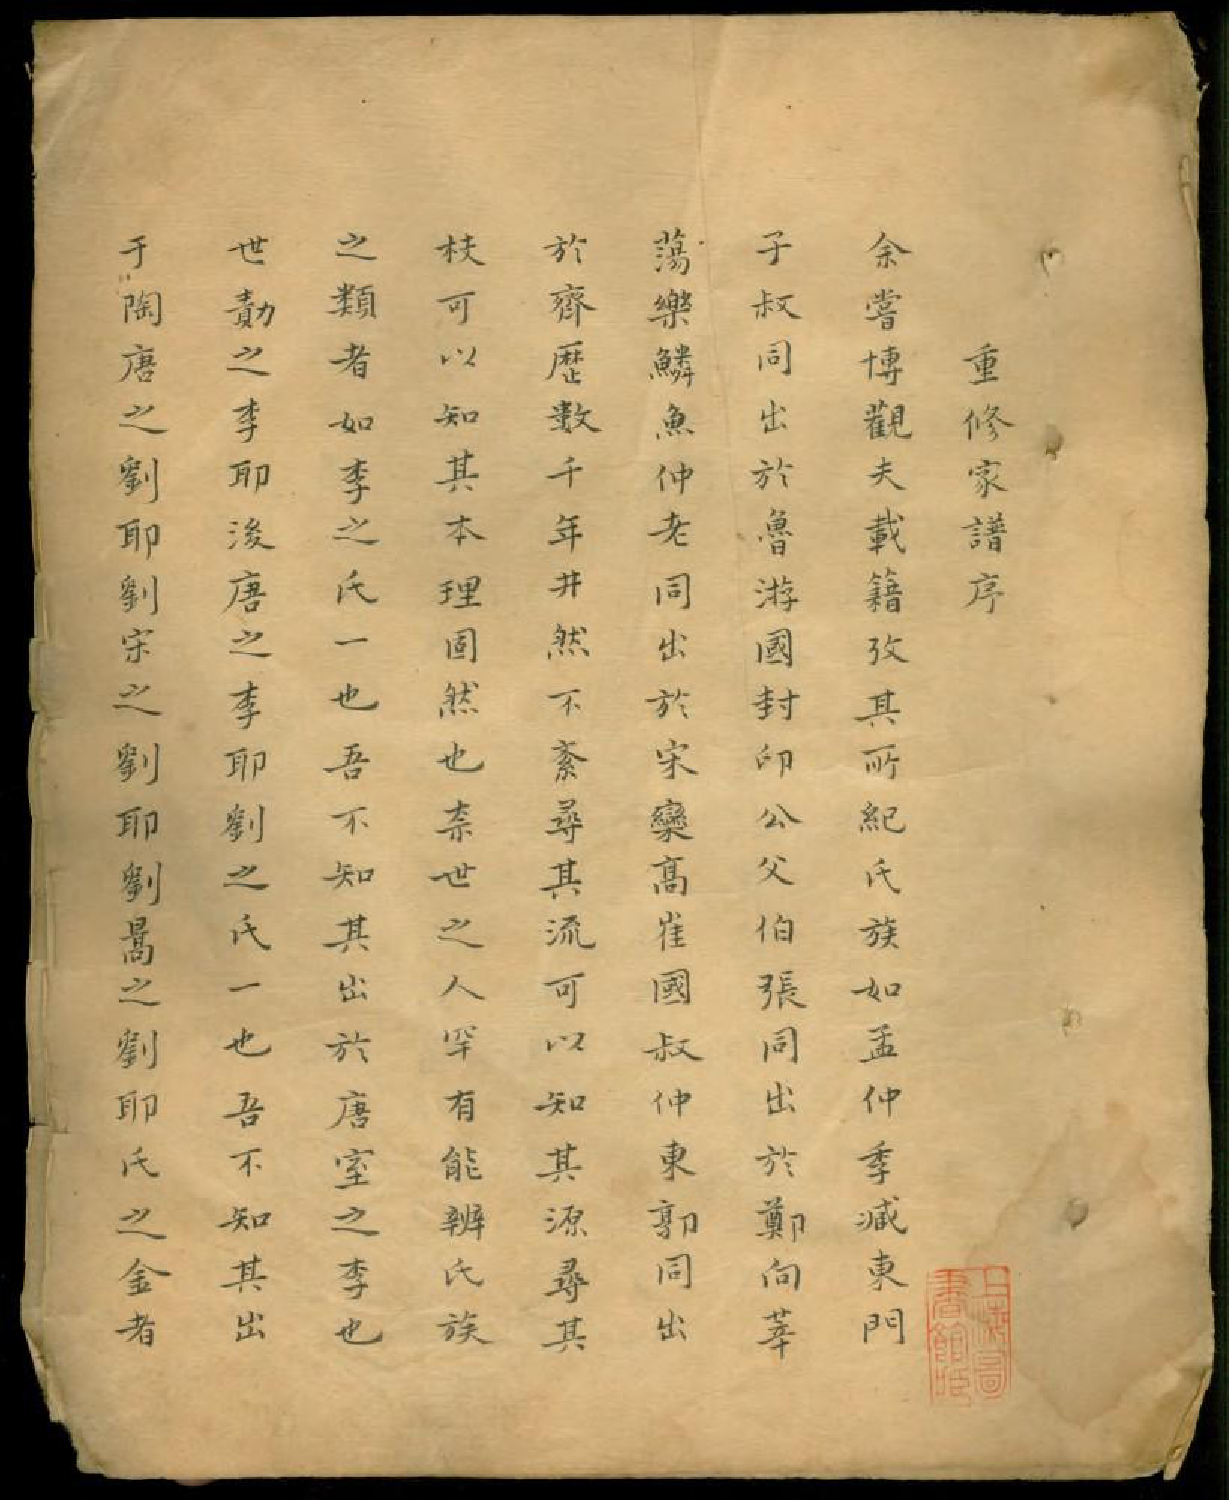 重修家譜序
余嘗博觀夫載籍攷其所紀氏族如孟仲季臧東門
子叔同出於魯游國封印公父伯張同出於鄭向莘
蕩樂鱗魚仲老同出於宋欒高崔國叔仲東郭同出
於齊歷數千年井然不紊尋其流可以知其源尋其
枝可以知其本理固然也柰世之人罕有能辨氏族
之類者如李之氏一也吾不知其出於唐室之李也
世勣之李耶後唐之李耶劉之氏一也吾不知其出
于陶唐之劉耶劉宋之劉耶劉暠之劉耶氏之金者
上海圖書館藏